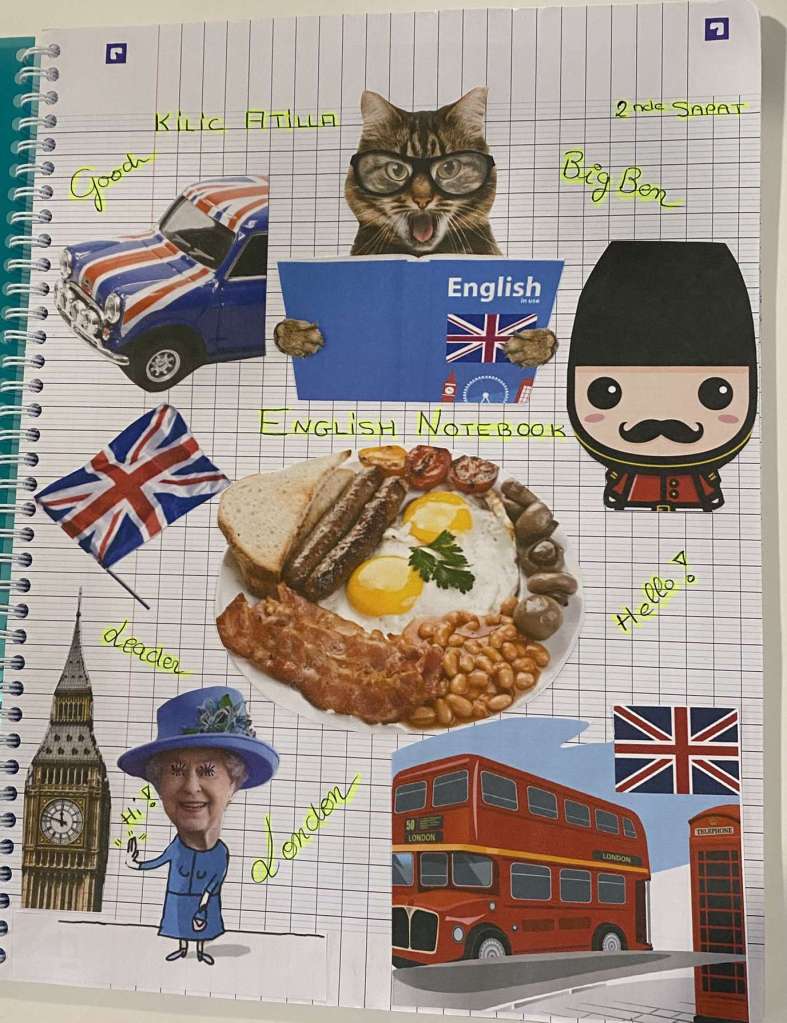 KILIC ATILLA
2nde SAPAT
Good
Big Ben
English
in use
ENGLISH NOTEBOOK
Hello!
Leader
Hi!
London
50
LONDON
LONDON
TELEPHONE